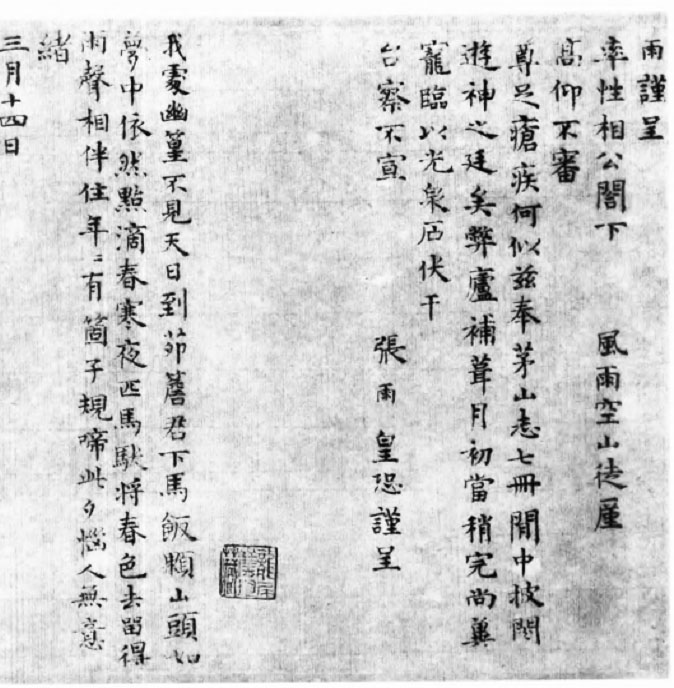 雨謹呈
率性相公閤下　風雨空山徒廑
高仰不審
尊足瘡疾何似兹奉茅山志七冊閒中披閱
遊神之廷矣弊廬補葺月初當稍完尚冀
寵臨以光泉石伏干
台察不宣
張雨皇恐謹呈
我處幽篁不見天日到茆簷君下馬飯顆山頭如
夢中依然點滴春寒夜匹馬馱將春色去留得
雨聲相伴住年〻有箇子規啼此夕惱人無意
緒
三月十四日